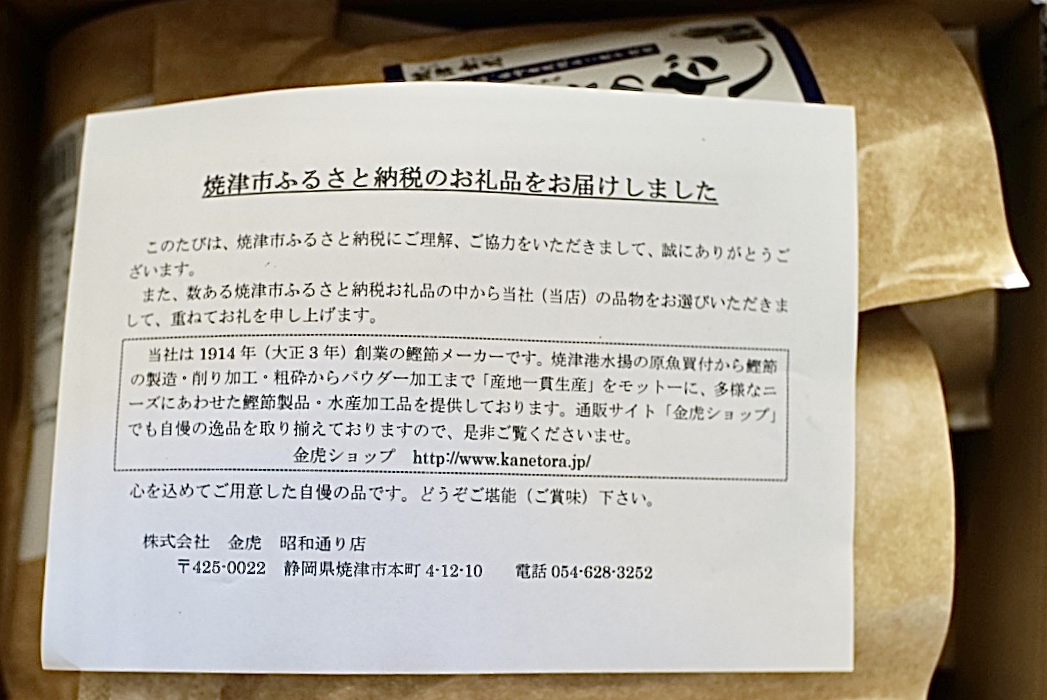 焼津市ふるさと納税のお礼品をお届けしました
このたびは、焼津市ふるさと納税にご理解、ご協力をいただきまして、誠にありがとうご
ざいます。
また、数ある焼津市ふるさと納税お礼品の中から当社（当店）の品物をお選びいただきま
して、重ねてお礼を申し上げます。
当社は 1914 年（大正 3 年）創業の鰹節メーカーです。焼津港水揚の原魚買付から鰹節
の製造・削り加工・粗砕からパウダー加工まで「産地一貫生産」をモットーに、多様なニ
ーズにあわせた鰹節製品・水産加工品を提供しております。通販サイト「金虎ショップ」
でも自慢の逸品を取り揃えておりますので、是非ご覧くださいませ。
金虎ショップ　http://www.kanetora.jp/
心を込めてご用意した自慢の品です。どうぞご堪能（ご賞味）下さい。
株式会社　金虎　昭和通り店
〒425-0022　静岡県焼津市本町 4-12-10　　電話 054-628-3252